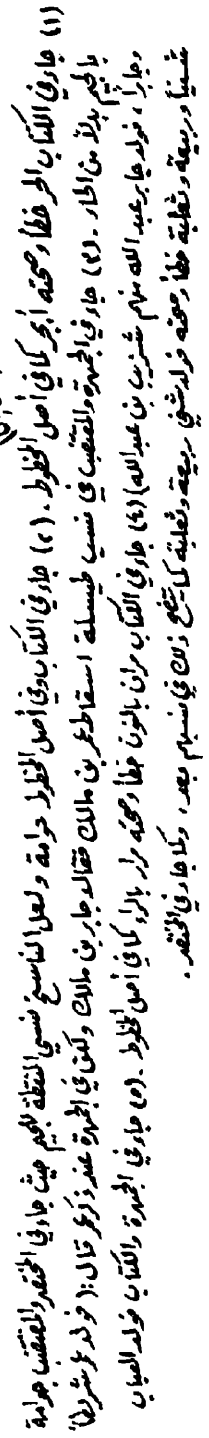 (١) جاء في الكتاب الحر خطأ وصحته أبجر كما في أصل المخطوط. (٢) جاء في الكتاب وفي أصل المخطوط حوامة ولعل الناسخ نسي النقطة للجيم حيث جاء في المختصر والمقتضب جوامة
بالجيم بدلاً من الحاء. (٣) جاء في الجمهرة والمقتضب في نسب طيسلة اسقاط عمر بن مالك فقالد جابر بن مالك ولكن في الجمهرة عند ذكر عمر قال: (فولد عمر شريطاً
وجابراً، فولد جابر عبد الله منهم شنريب بن عبد الله) (٤) جاء في الكتاب مران بالنون خطأ وصحته مرار بالراء كما في أصل المخطوط. (٥) جاء في الجمهرة والكتاب فولد العباب
شنياً وربيعة وثعلبة خطأ وصحته فولد شني ربيعة وثعلبة كما يتضح ذلك في نسبهم بعد، وكما جاء في المختصر.